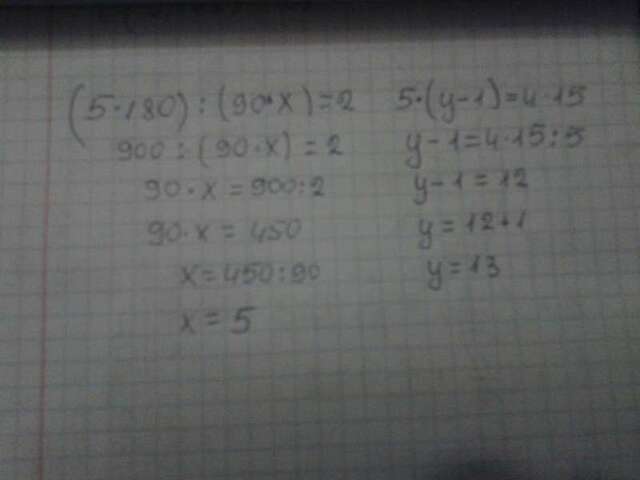 (5·180):(90·x)=2
900:(90·x)=2
90·x=900:2
90·x=450
x=450:90
x=5
5·(y-1)=4·15
y-1=4·15:5
y-1=12
y=12+1
y=13